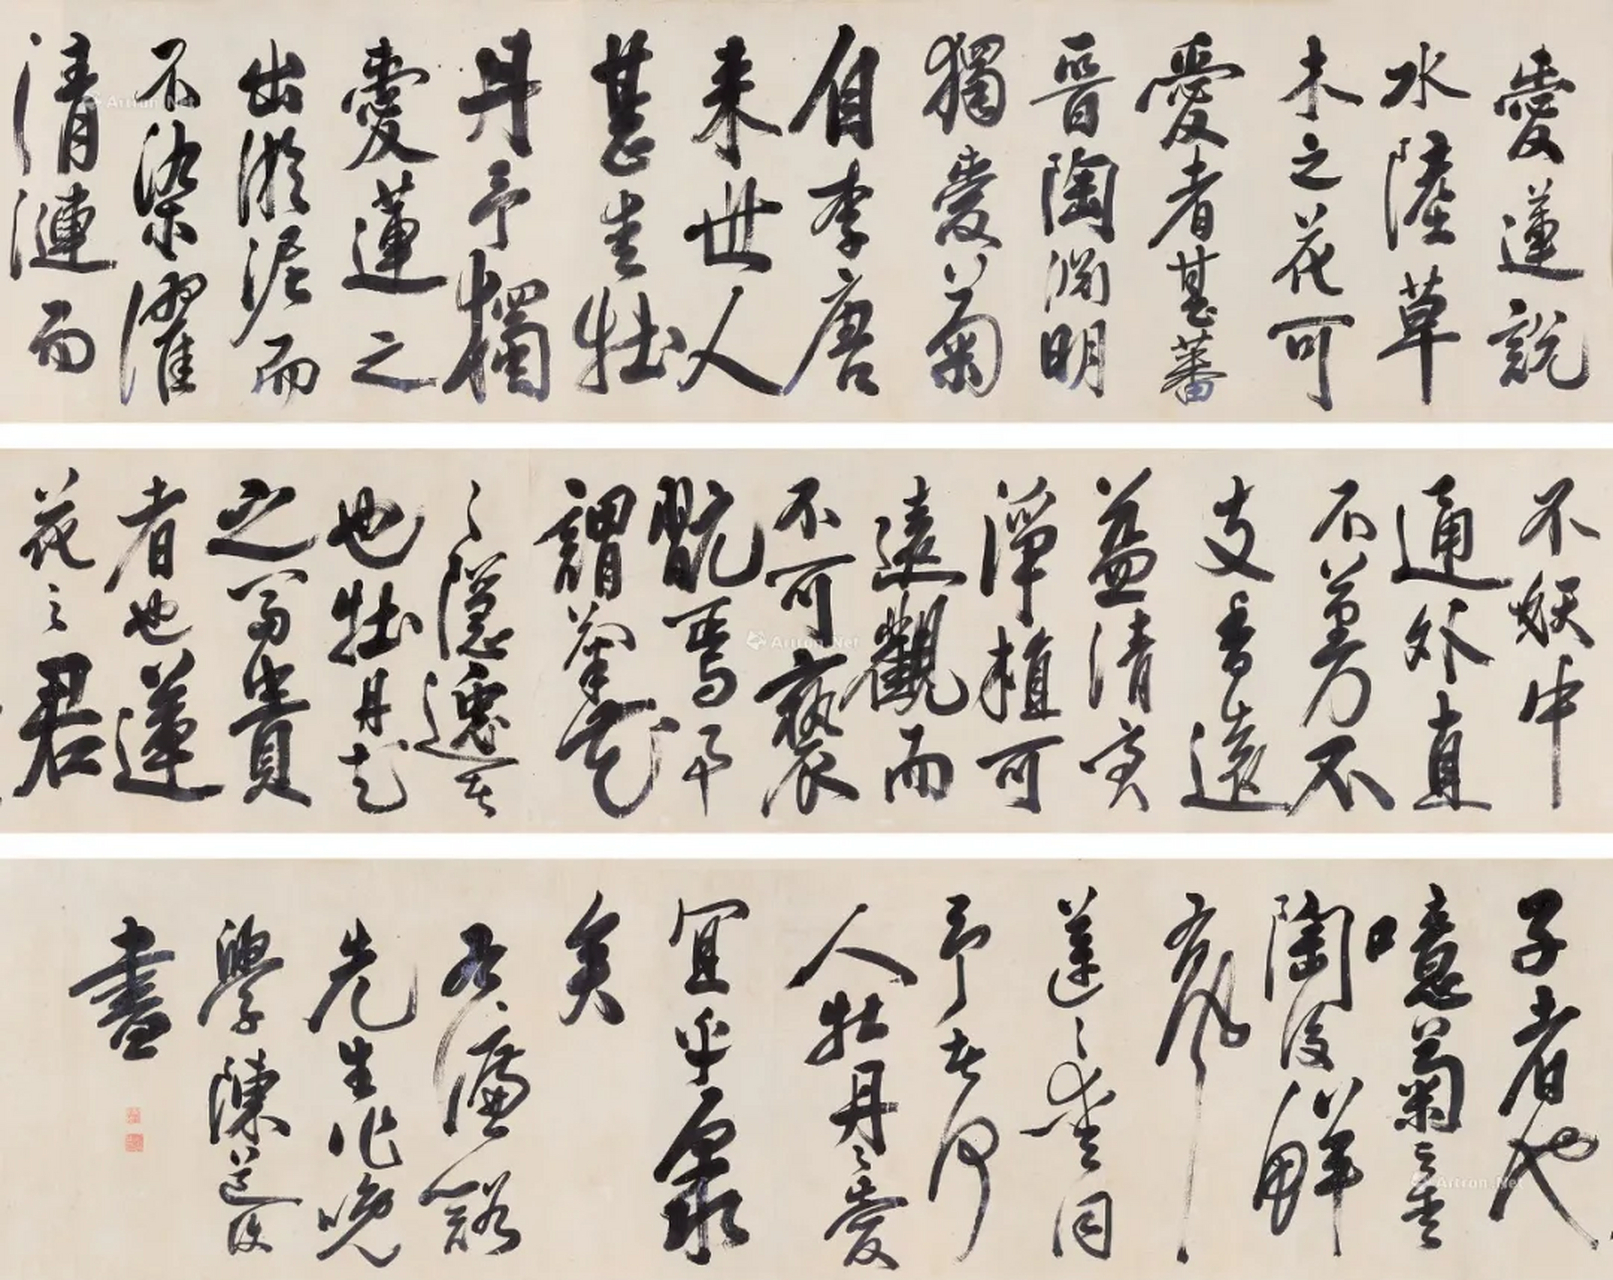 愛蓮說
水陸草
木之花可
愛者甚蕃
晉陶淵明
獨愛菊
自李唐
来世人
甚愛牡
丹予獨
愛蓮之
出淤泥而
不染濯
清漣而
不妖中
通外直
不蔓不
支香遠
益清亭
淨植可
遠觀而
不可褻
翫焉予
謂菊花
之隱逸者
也牡丹花
之富貴
者也蓮
花之君
子者也
噫菊之愛
陶後鮮
有聞
蓮之愛同
予者何
人牡丹之愛
宜乎衆
矣
右濂谿
先生作晚
學陳道復
書
Artron.Net
Artron.Net
Artron.Net